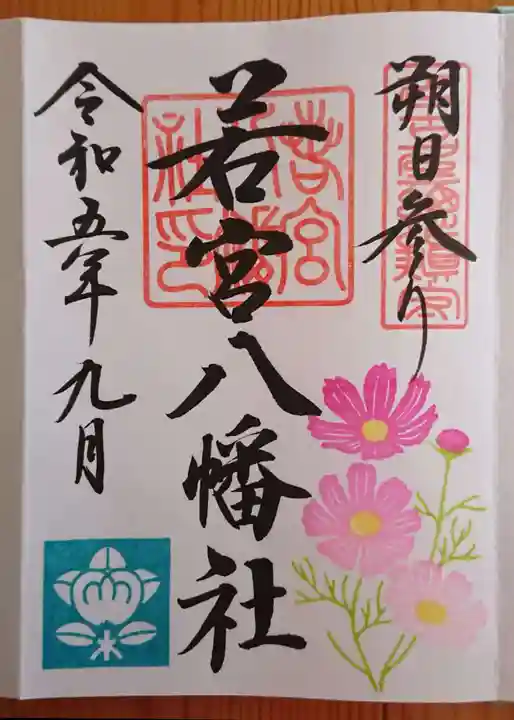 朔日参り
若宮八幡社
令和五年九月